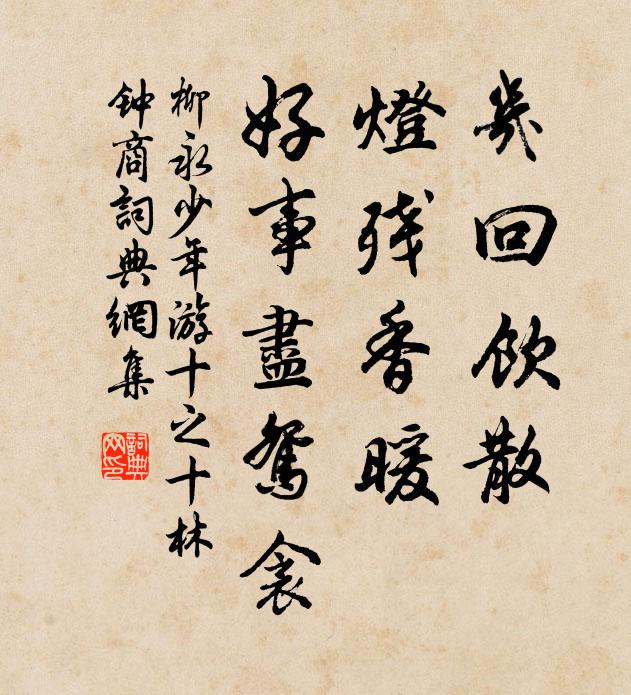 幾回飲散
燈殘香暖
好事盡鴛衾
柳永少年游十之十林
钟商詞典網集
詞典网印